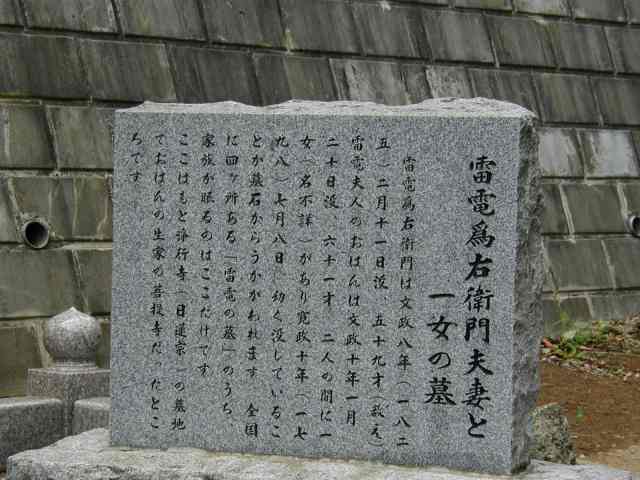 雷電爲右衛門夫妻と
一女の墓
雷電爲右衛門は文政八年(一八二
五)二月十一日没、五十九才(数え)
雷電夫人のおはんは文政十年一月
二十日没、六十一才 二人の間に一
女(名不詳)があり寛政十年(一七
九八)七月八日 幼く没しているこ
とが墓石からうかがわれます 全国
に四ヶ所ある「雷電の墓」のうち、
家族が眠るのはここだけです
ここはもと浄行寺(日蓮宗)の墓地
でおはんの生家の菩提寺だったとこ
ろです